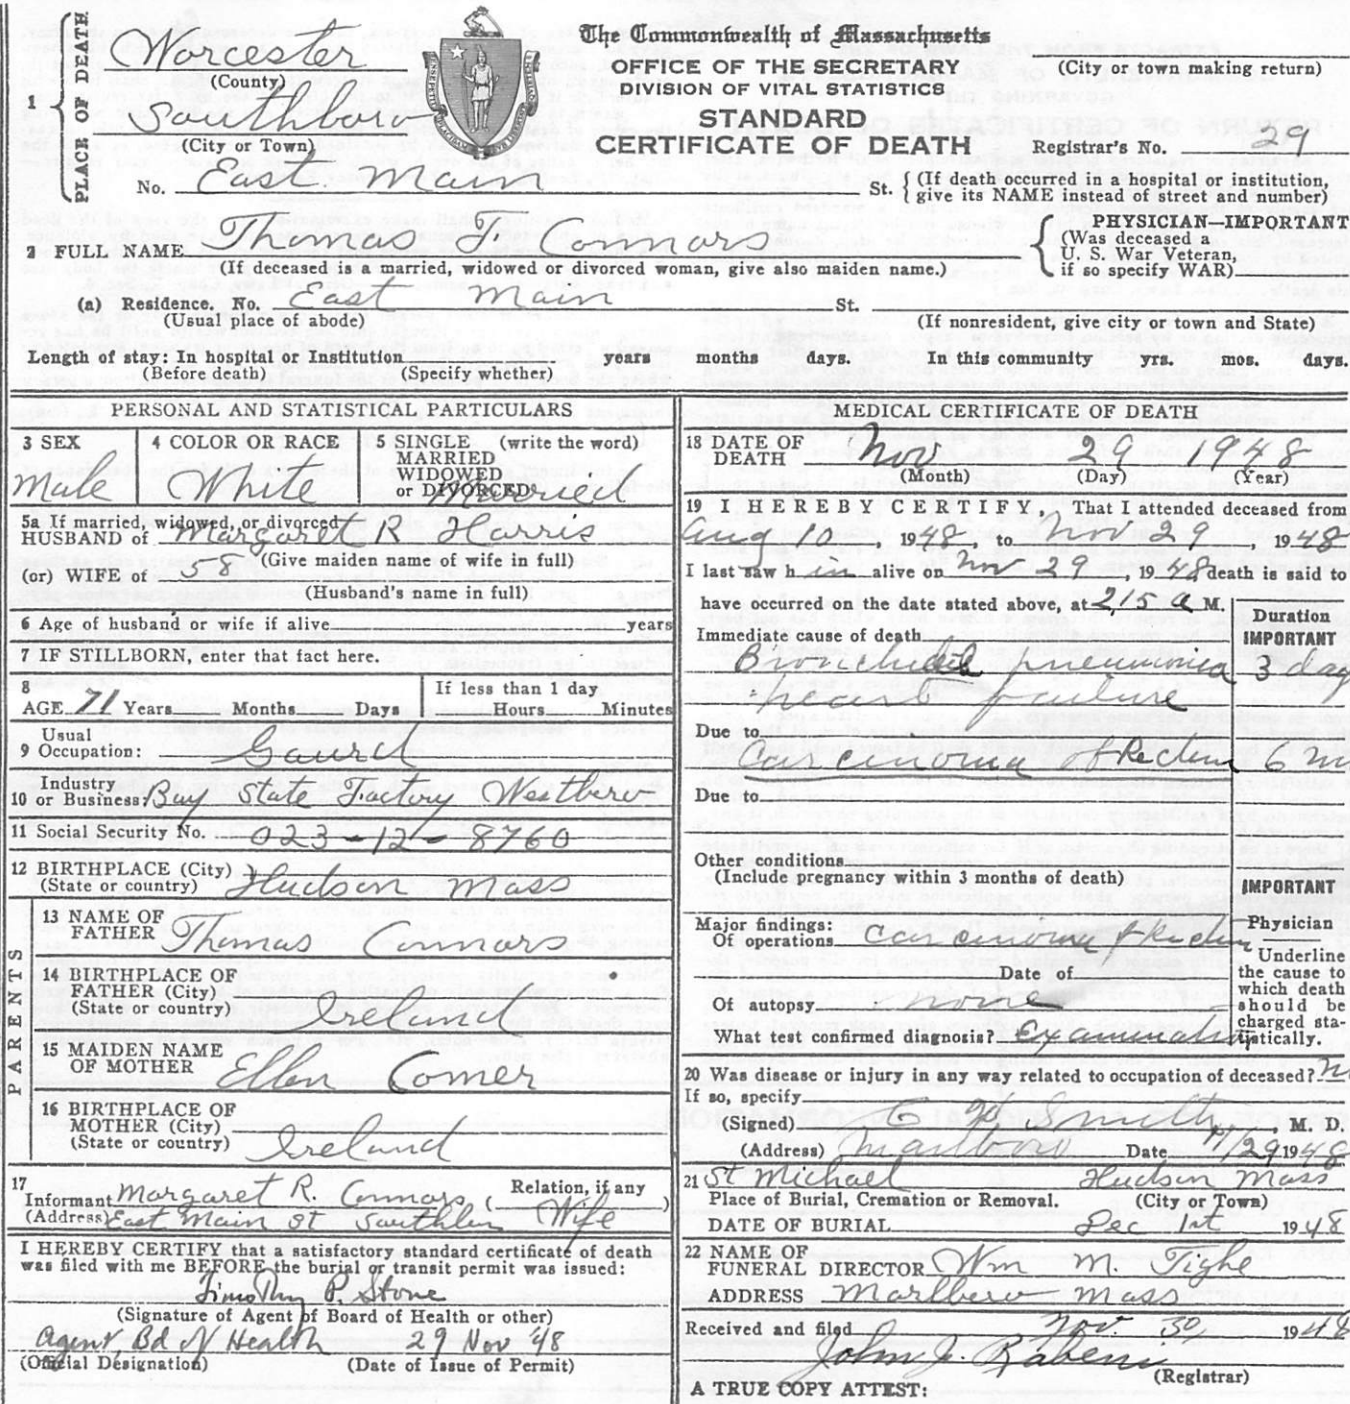 The Commonwealth of Massachusetts
OFFICE OF THE SECRETARY
DIVISION OF VITAL STATISTICS
STANDARD
CERTIFICATE OF DEATH
1 PLACE OF DEATH
Worcester
(County)
Southboro
(City or Town)
No. East Main St.
(City or town making return)
Registrar's No. 29
(If death occurred in a hospital or institution,
give its NAME instead of street and number)
2 FULL NAME Thomas F. Connors
(If deceased is a married, widowed or divorced woman, give also maiden name.)
PHYSICIAN—IMPORTANT
(Was deceased a
U. S. War Veteran,
if so specify WAR)
(a) Residence. No. East Main St.
(Usual place of abode)
(If nonresident, give city or town and State)
Length of stay: In hospital or Institution years months days. In this community yrs. mos. days.
(Before death) (Specify whether)
PERSONAL AND STATISTICAL PARTICULARS
3 SEX
Male
4 COLOR OR RACE
White
5 SINGLE (write the word)
MARRIED
WIDOWED
or DIVORCED Married
5a If married, widowed, or divorced
HUSBAND of Margaret R Harris
(Give maiden name of wife in full)
(or) WIFE of 58
(Husband's name in full)
6 Age of husband or wife if alive years
7 IF STILLBORN, enter that fact here.
8 AGE 71 Years Months Days
If less than 1 day
Hours Minutes
9 Usual Occupation: Gaurd
10 Industry or Business: Bay State Factory Westboro
11 Social Security No. 023-12-8760
12 BIRTHPLACE (City)
(State or country) Hudson Mass
PARENTS
13 NAME OF
FATHER Thomas Connors
14 BIRTHPLACE OF
FATHER (City)
(State or country) Ireland
15 MAIDEN NAME
OF MOTHER Ellen Comer
16 BIRTHPLACE OF
MOTHER (City)
(State or country) Ireland
17 Informant Margaret R. Connors (Relation, if any Wife)
(Address) East Main St Southboro
I HEREBY CERTIFY that a satisfactory standard certificate of death
was filed with me BEFORE the burial or transit permit was issued:
Timothy P. Stone
(Signature of Agent of Board of Health or other)
Agent, Bd of Health 29 Nov '48
(Official Designation) (Date of Issue of Permit)
MEDICAL CERTIFICATE OF DEATH
18 DATE OF
DEATH Nov 29 1948
(Month) (Day) (Year)
19 I HEREBY CERTIFY, That I attended deceased from
Aug 10 1948, to Nov 29, 1948
I last saw h im alive on Nov 29, 1948 death is said to
have occurred on the date stated above, at 2.15 a M.
Duration
IMPORTANT
Immediate cause of death
Bronchial pneumonia 3 day
heart failure
Due to
Carcinoma of Rectum 6 m
Due to
Other conditions
(Include pregnancy within 3 months of death)
IMPORTANT
Major findings:
Of operations Carcinoma of Rectum
Date of
Of autopsy none
What test confirmed diagnosis? Examination
Physician
Underline
the cause to
which death
should be
charged sta-
tistically.
20 Was disease or injury in any way related to occupation of deceased? No
If so, specify
(Signed) Smith, M. D.
(Address) Marlboro Date 11/29 1948
21 St Michael Hudson Mass
Place of Burial, Cremation or Removal. (City or Town)
DATE OF BURIAL Dec 1st 1948
22 NAME OF
FUNERAL DIRECTOR Wm M. Tighe
ADDRESS Marlboro Mass
Received and filed Nov. 30, 1948
John J.
(Registrar)
A TRUE COPY ATTEST: